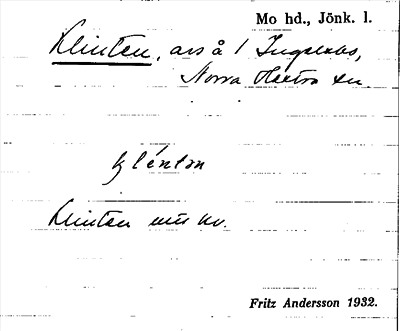 Mo hd., Jönk. l.
Klinten, avs å 1 Ingelsbo,
Norra Hestra sn.
klénton
Klinten
Fritz Andersson 1932.